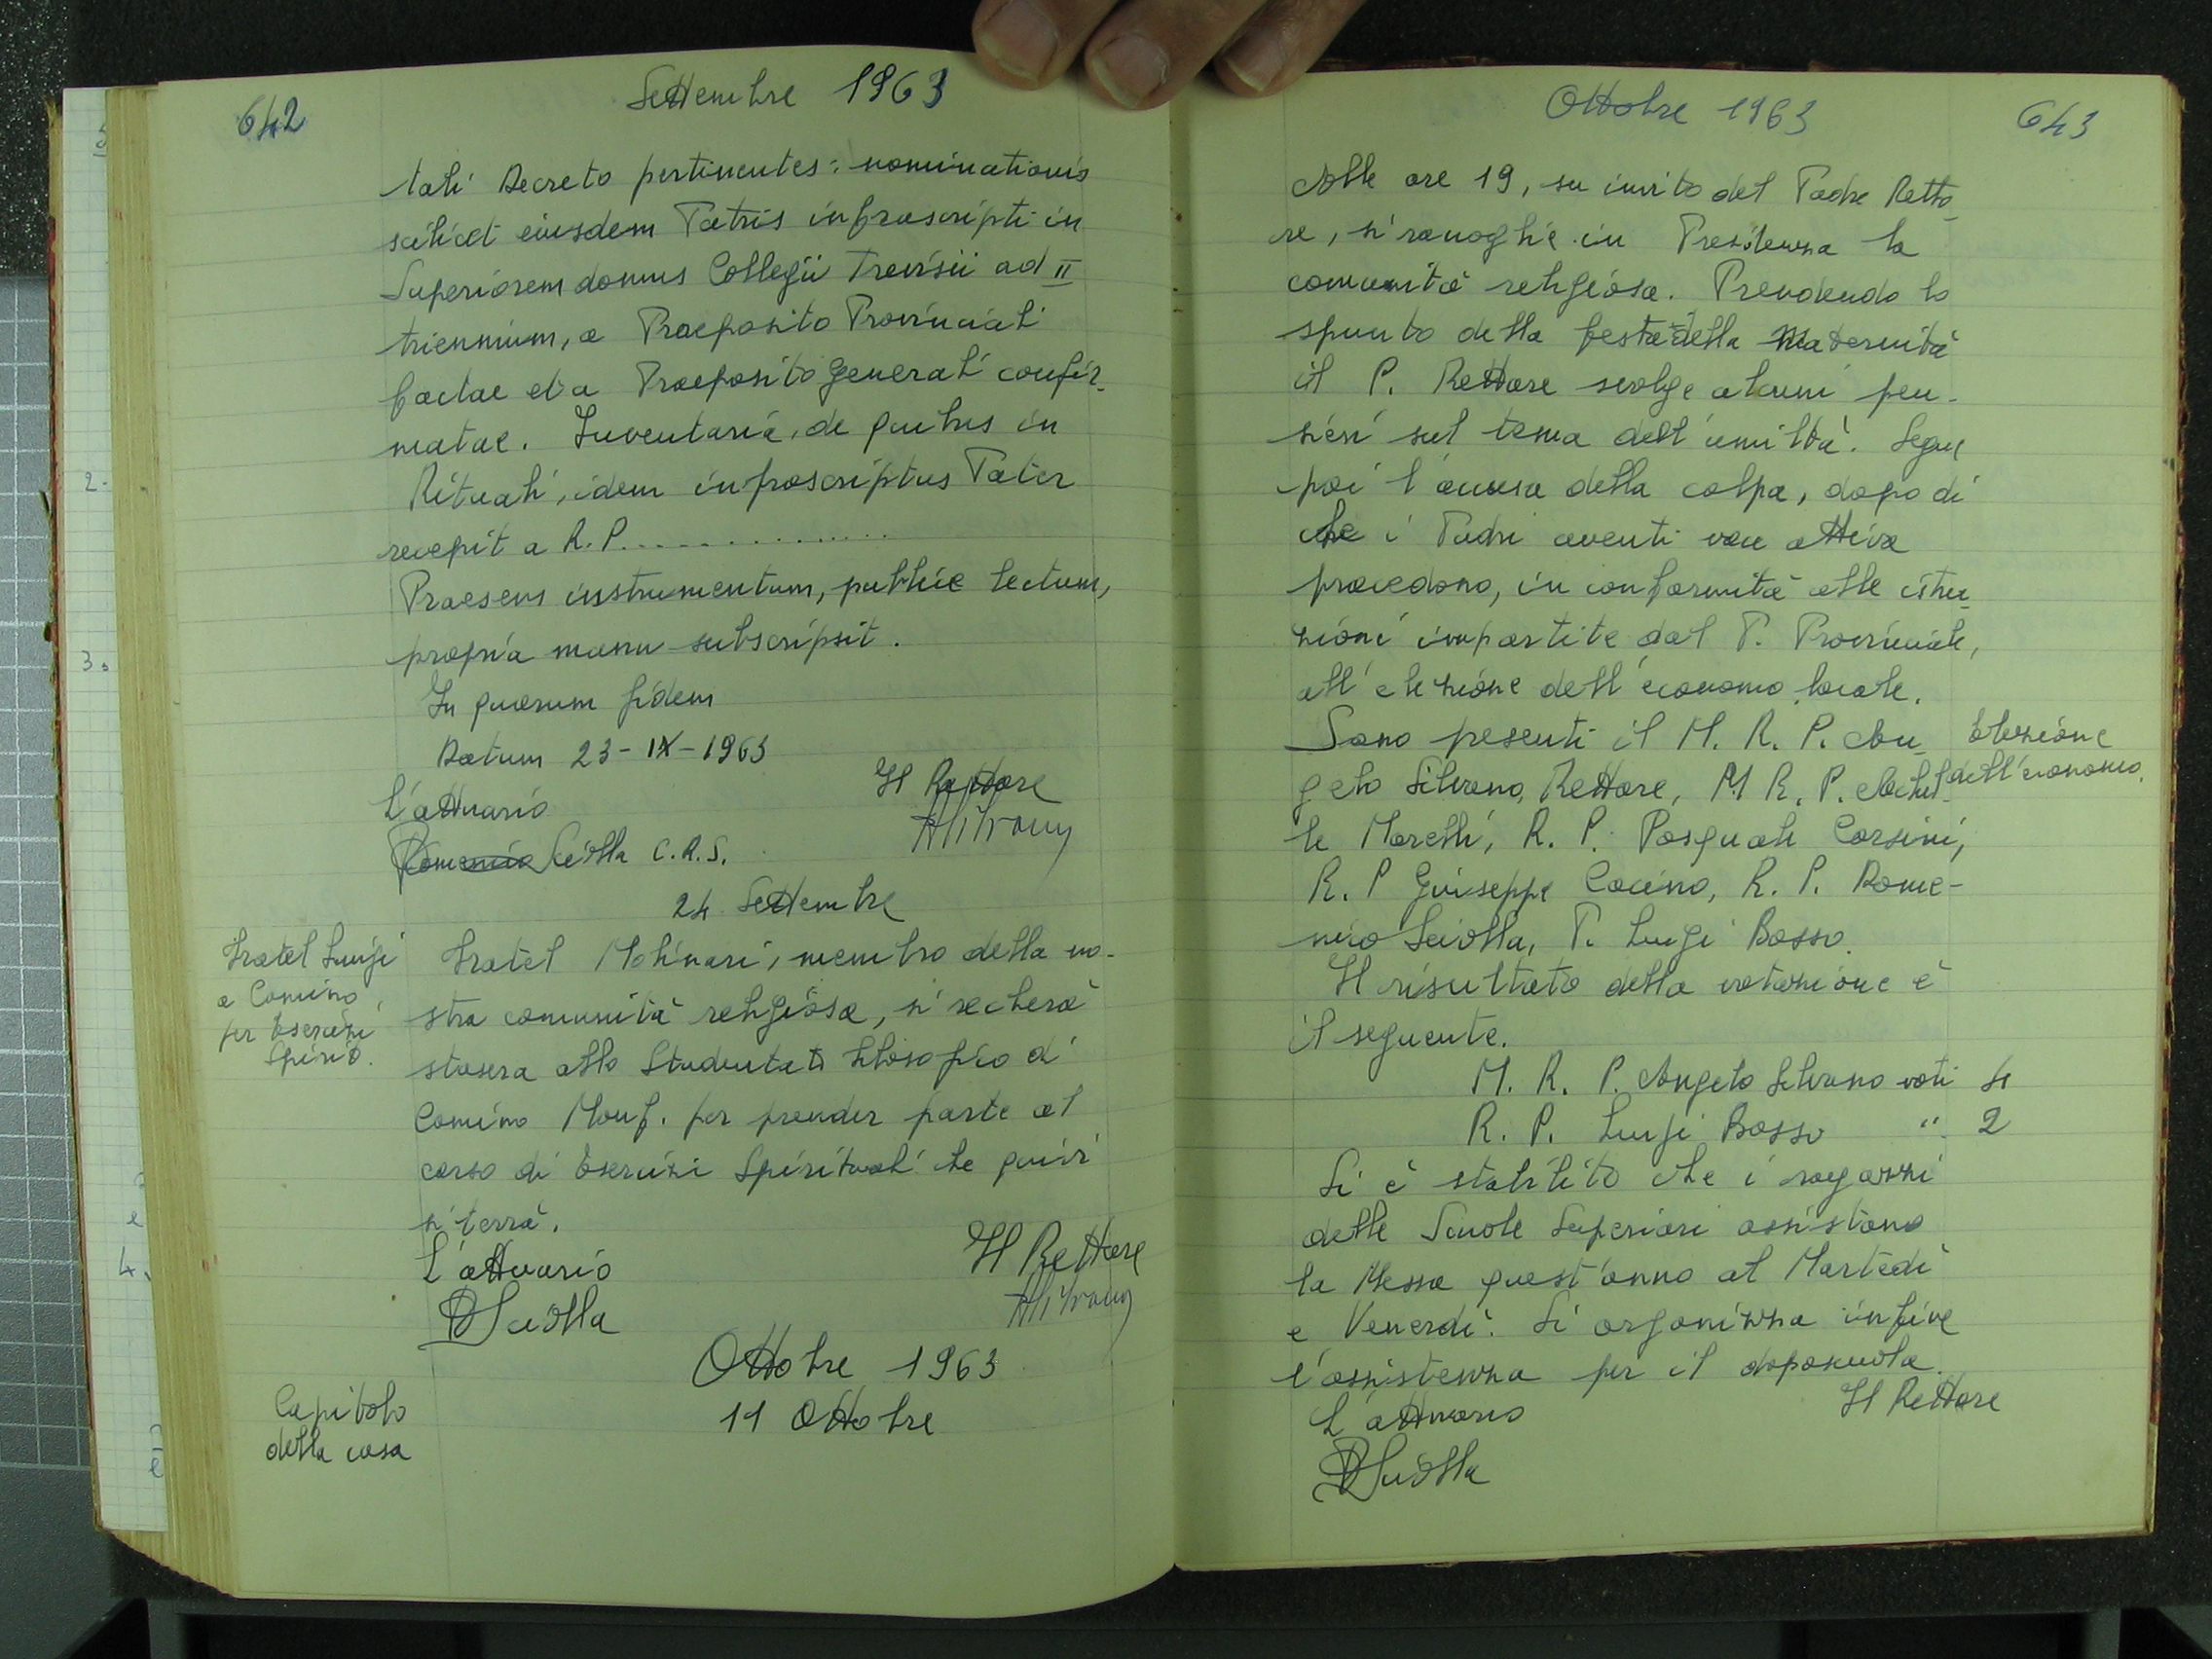 642
Settembre 1963
tali Decreto pertinentes: nominationis
scilicet eiusdem Patris infrascripti in
Superiorem domus Collegii Trevisii ad II
triennium, a Praeposito Provinciali
factae et a Praeposito Generali confir-
matae. Inventaria, de quibus in
Rituali, idem infrascriptus Pater
recepit a R. P. ..............
Praesens instrumentum, publice lectum,
propria manu subscripsit.
In quorum fidem
Datum 23-IX-1963
L'attuario
Il Rettore
Sciolla C.R.S.
24 Settembre
Fratel Luigi
a Comino
per Esercizi
Spirit.
Fratel Molinari, membro della no-
stra comunità religiosa, si recherà
stasera allo Studentato filosofico di
Comino Monf. per prender parte al
corso di Esercizi Spirituali che quivi
si terrà.
L'attuario
Il Rettore
DSciolla
Ottobre 1963
Capitolo
della casa
11 Ottobre
Ottobre 1963
643
Alle ore 19, su invito del Padre Retto-
re, si raccoglie in Presidenza la
comunità religiosa. Prendendo lo
spunto della festa della Maternità
il P. Rettore svolge alcuni pen-
sieri sul tema dell'umiltà. Segue
poi l'accusa della colpa, dopo di
che i Padri aventi voce attiva
procedono, in conformità alle istru-
zioni impartite dal P. Provinciale,
all'elezione dell'economo locale.
Elezione
dell'economo.
Sono presenti il M. R. P. An-
gelo Silvano, Rettore, M R. P. Achil-
le Marelli, R. P. Pasquale Corsini,
R. P Giuseppe Cocino, R. P. Dome-
nico Sciolla, P. Luigi Bosso.
Il risultato della votazione è
il seguente.
M. R. P. Angelo Silvano voti 4
R. P. Luigi Bosso " 2
Si è stabilito che i ragazzi
delle Scuole Superiori assistano
la Messa quest'anno al Martedì
e Venerdì. Si organizza infine
l'assistenza per il doposcuola.
L'attuario
Il Rettore
DSciolla